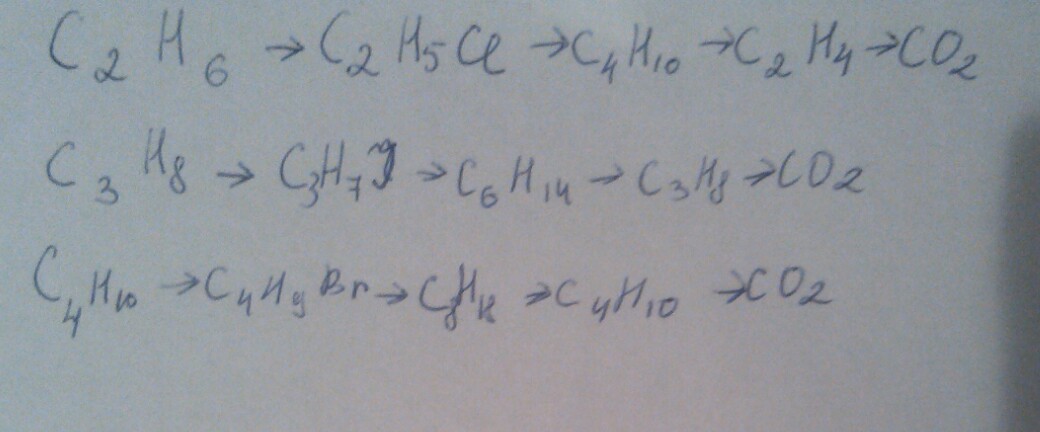 C₂H₆ → C₂H₅Cl → C₄H₁₀ → C₂H₄ → CO₂
C₃H₈ → C₃H₇J → C₆H₁₄ → C₃H₈ → CO₂
C₄H₁₀ → C₄H₉Br → C₈H₁₈ → C₄H₁₀ → CO₂